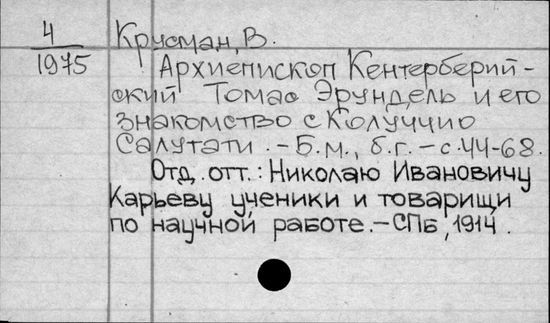 4 Крусман, В.
1975 Архиепископ Кентерберий-
ский Томас Эрундель и его
знакомство с Колуччио
Салутати. - Б.м., б.г. - с.44-68.
Отд. отт.: Николаю Ивановичу
Карьеву ученики и товарищи
по научной работе. - СПб, 1914.